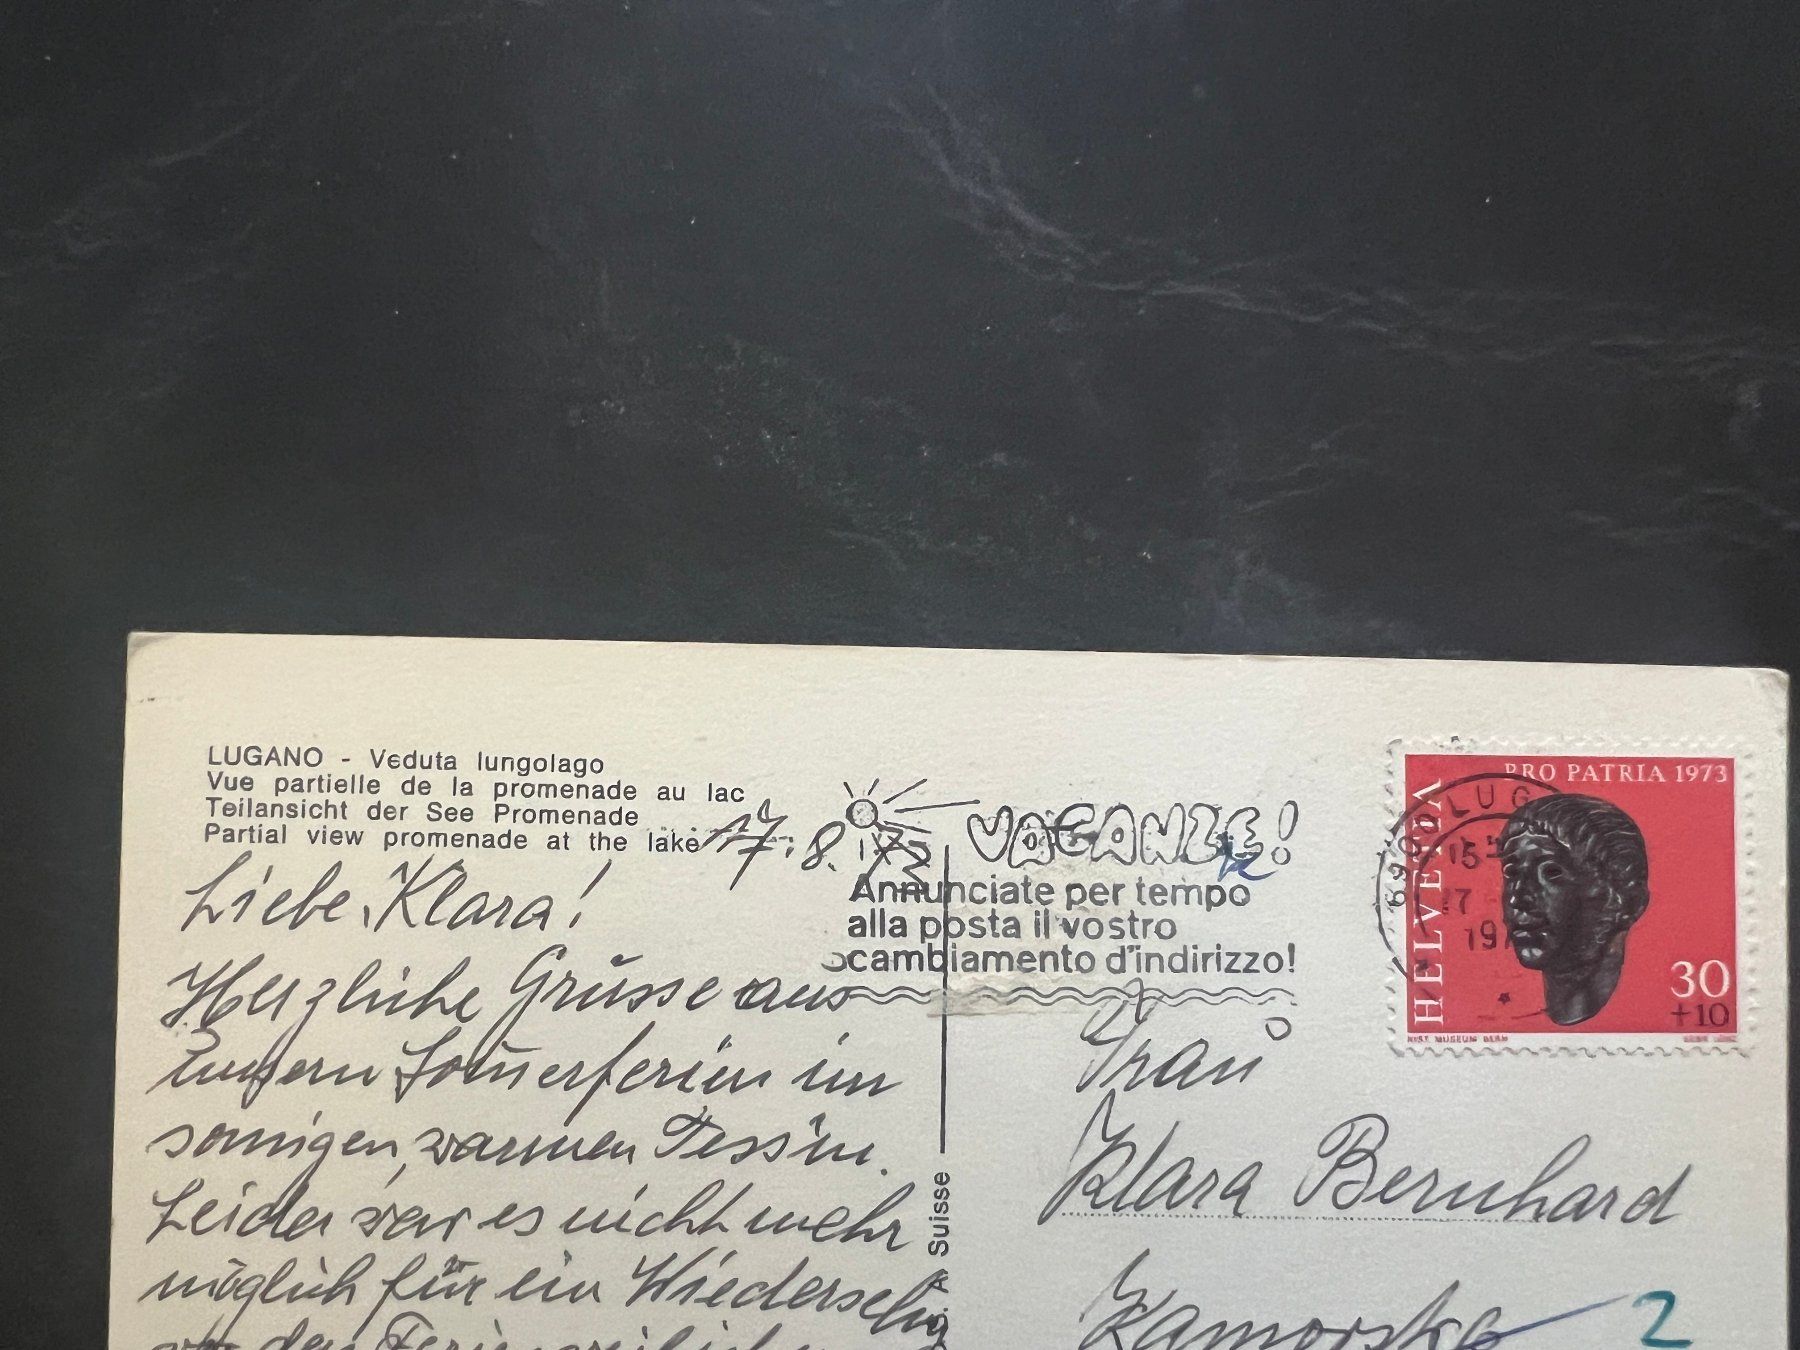 LUGANO - Veduta lungolago
Vue partielle de la promenade au lac
Teilansicht der See Promenade
Partial view promenade at the lake
17.8.73
Liebe Klara!
Herzliche Grüsse aus
unsern Somerferien im
sonnigen, warmen Tessin.
Leider war es nicht mehr
möglich für ein Wiedersehn
vor den Ferien
VACANZE!
Annunciate per tempo
alla posta il vostro
cambiamento d'indirizzo!
Suisse
PRO PATRIA 1973
HELVETIA
30
+10
HIST. MUSEUM BERN
6900 LUG
15
17
197
Frau
Klara Bernhard
2